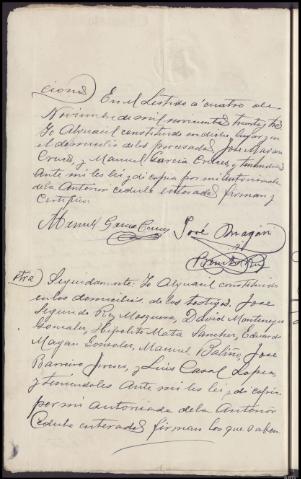 ciones En el Listido a cuatro de
Noviembre de mil novecientos treinta y tres
Yo Alguacil constituido en dicho lugar y en
el domicilio de los procesados José Magan
Cruces, y Manuel Garcia Cruces y teniendolos
Ante mi les lei y di copia por mi autorizada
de la Anterior cedula enterados firman y
Certifico
Manuel Garcia Cruces José Magán
Otra Seguidamente Yo Alguacil constituido
en los domicilios de los testigos, José
Segundo Rey Mosquera, David Montenegro
Gonzalez, Hipolito Mata Sanchez, Eduardo
Magan Gonzalez, Manuel Baliño, José
Barreiro, y Luis Casal Lopez
y teniendoles Ante mi les lei y di copia
por mi autorizada de la Anterior
Cedula enterados firman los que saben